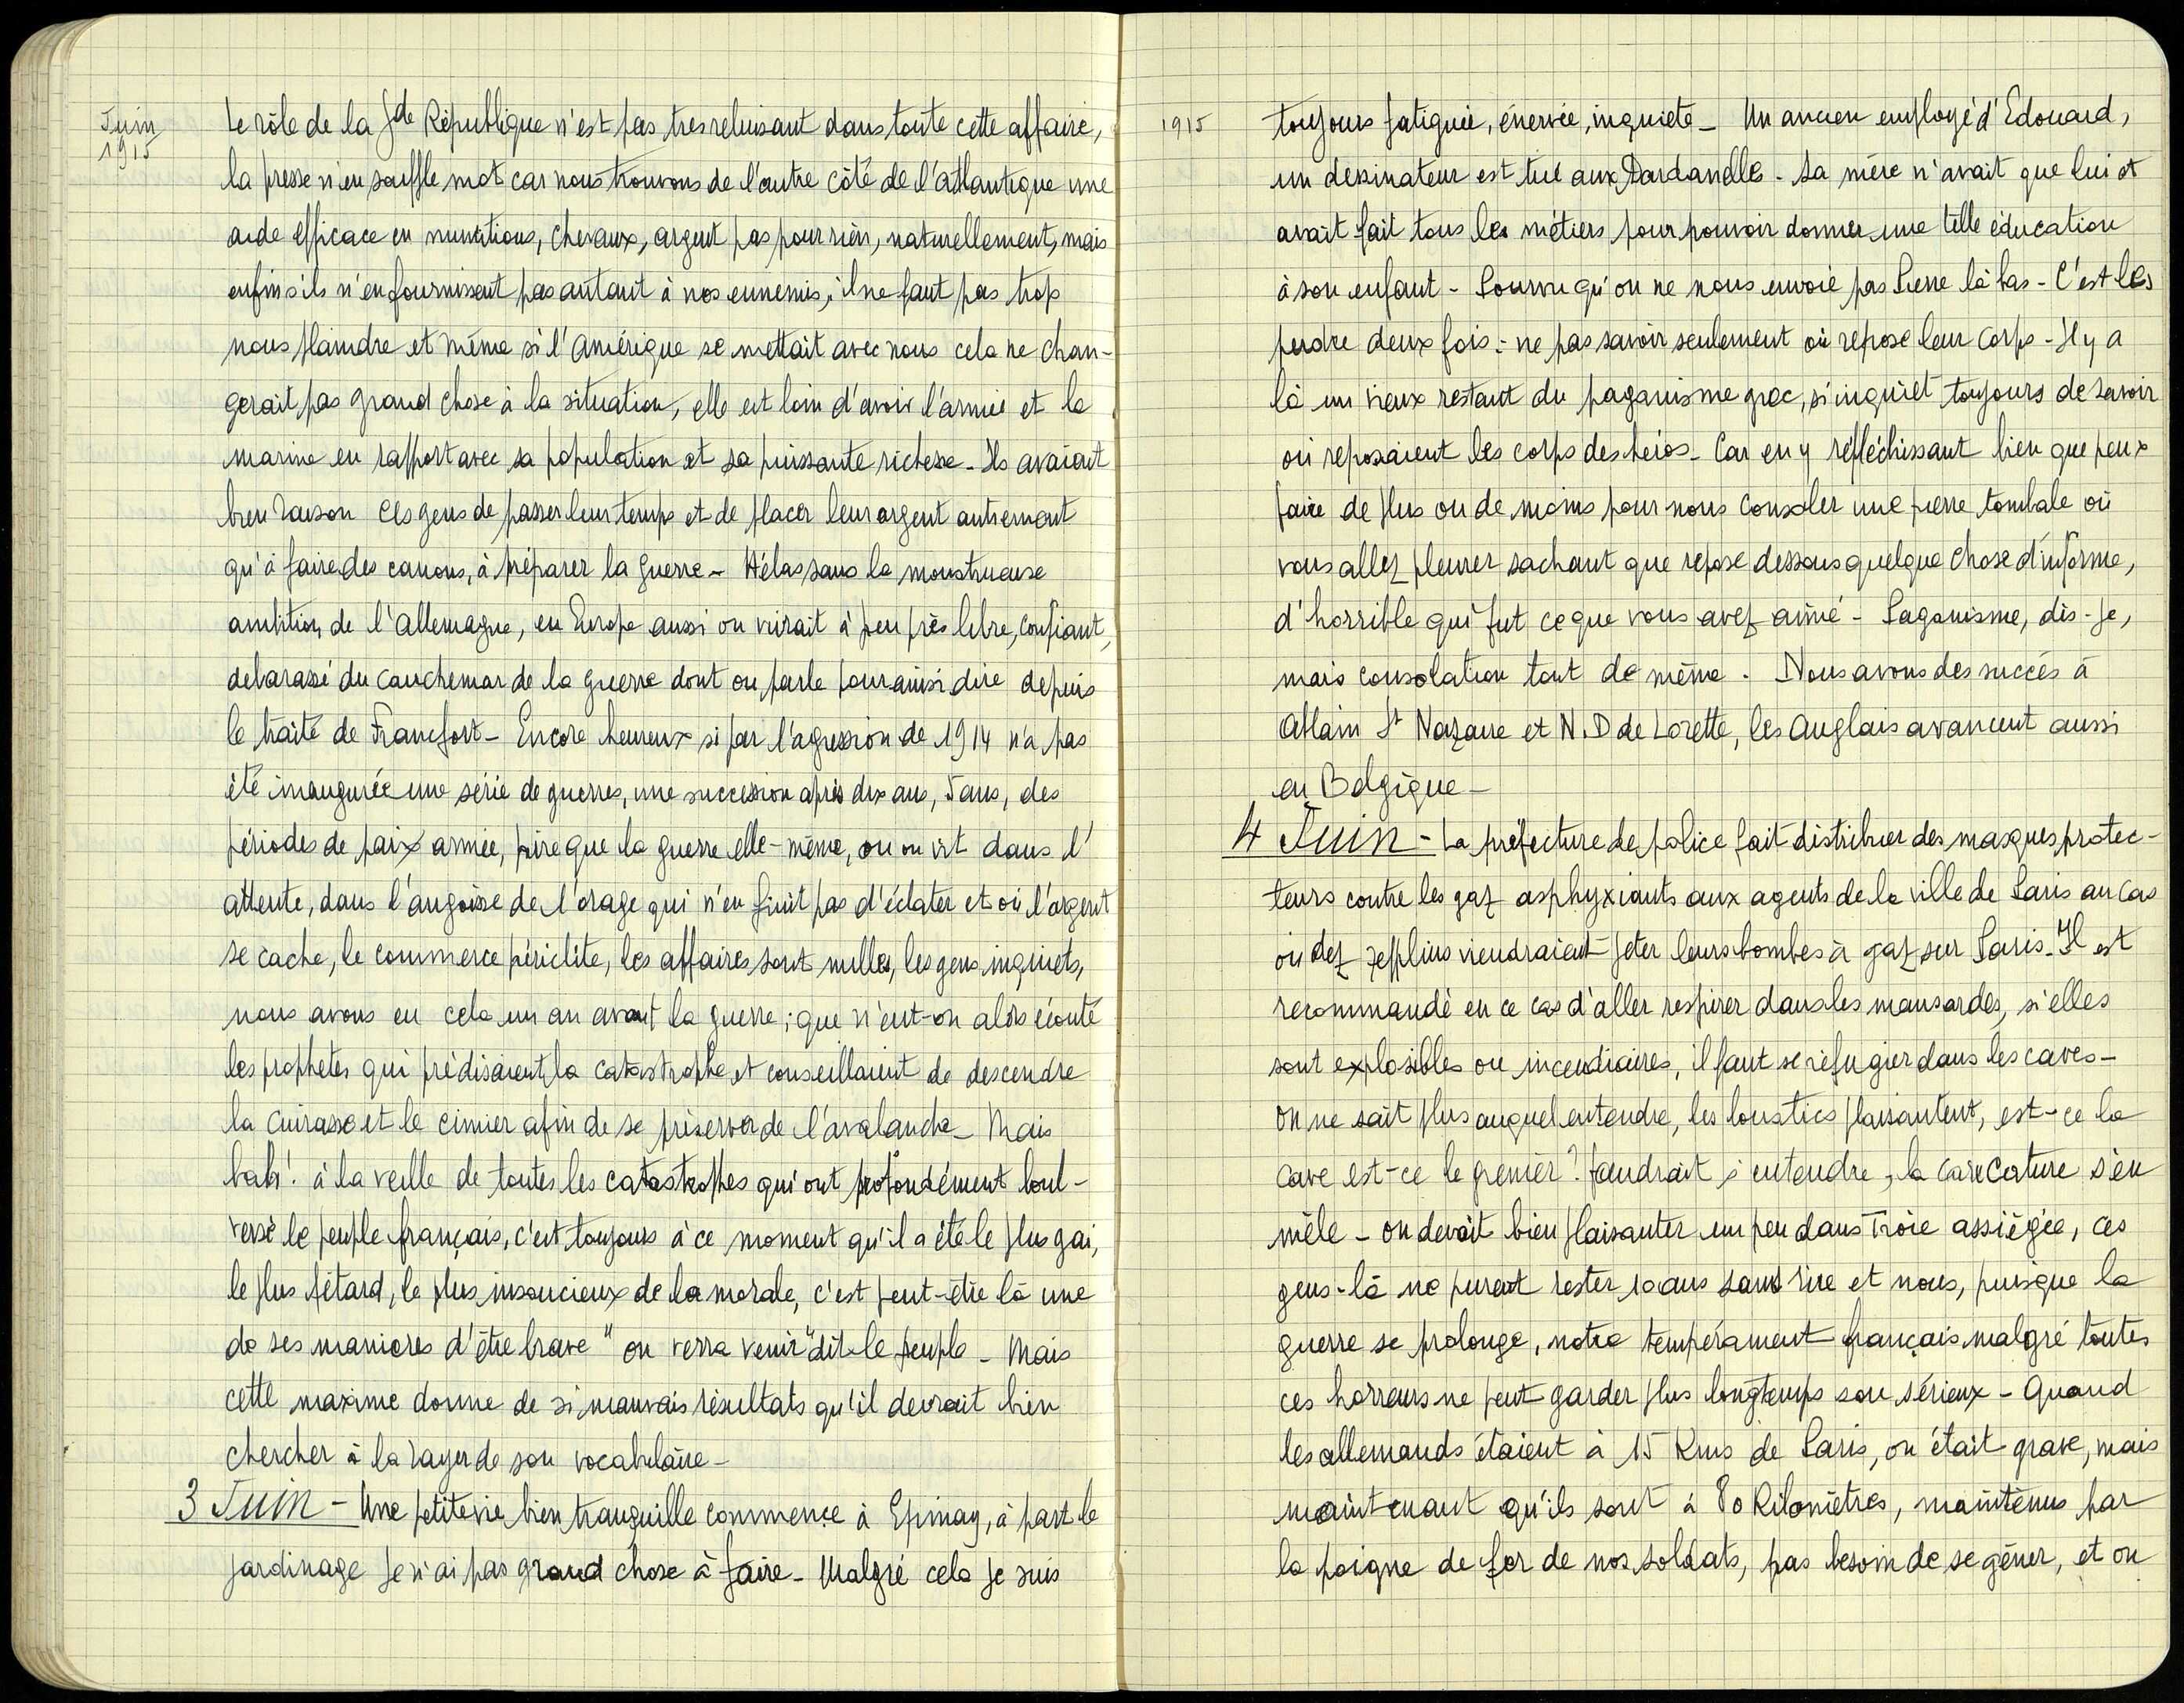 Juin
1915
Le rôle de la gde République n'est pas tres reluisant dans toute cette affaire,
la presse n'en souffle mot car nous trouvons de l'autre côté de l'atlantique une
aide efficace en munitions, chevaux, argent pas pour rien, naturellement, mais
enfin s'ils n'en fournissent pas autant à nos ennemis, il ne faut pas trop
nous plaindre et même si l'amérique se mettait avec nous cela ne chan-
gerait pas grand chose à la situation, elle est loin d'avoir l'armée et la
marine en rapport avec sa population et sa puissante richesse _ Ils avaient
bien raison ces gens de passer leur temps et de placer leur argent autrement
qu'à faire des canons, à préparer la guerre _ Hélas sans la monstrueuse
ambition de l'allemagne, en Europe aussi on vivrait à peu près libre, confiant,
debarassé du cauchemar de la guerre dont on parle pour ainsi dire depuis
le traité de Francfort _ Encore heureux si par l'agression de 1914 n'a pas
été inaugurée une série de guerres, une succession après dix ans, 5 ans, des
périodes de paix armée, pire que la guerre elle-même, ou on vit dans l'
attente, dans l'angoisse de l'orage qui n'en finit pas d'éclater et où l'argent
se cache, le commerce périclite, les affaires sont nulles, les gens inquiets,
nous avons eu cela un an avant la guerre ; que n'eut-on alors écouté
les prophetes qui prédisaient la catastrophe et conseillaient de descendre
la cuirasse et le cimier afin de se préserver de l'avalanche _ Mais
bah ! à la veille de toutes les catastrophes qui ont profondément boul-
versé le peuple français, c'est toujours à ce moment qu'il a été le plus gai,
le plus fétard, le plus insoucieux de la morale, c'est peut-être là une
de ses manieres d'être brave " on verra venir " dit le peuple _ Mais
cette maxime donne de si mauvais résultats qu'il devrait bien
chercher à la rayer de son vocabulaire _
3 Juin - Une petite vie bien tranquille commence à Epinay, à part le
jardinage je n'ai pas grand chose à faire _ Malgré cela je suis
1915
toujours fatiguée, énervée, inquiete _ Un ancien employé d'Edouard,
un dessinateur est tué aux Dardanelles - Sa mère n'avait que lui et
avait fait tous les métiers pour pouvoir donner une telle éducation
à son enfant - Pourvu qu'on ne nous envoie pas Pierre là bas - C'est les
perdre deux fois : ne pas savoir seulement où repose leur corps - Il y a
là un vieux restant du paganisme grec, si inquiet toujours de savoir
où reposaient les corps des héros _ Car en y réfléchissant bien que peux
faire de plus ou de moins pour nous consoler une pierre tombale où
vous allez pleurer sachant que repose dessous quelque chose d'informe,
d'horrible qui fut ce que vous avez aimé - Paganisme, dis-je,
mais consolation tout de même . Nous avons des succès à
Ablain St Nazaire et N.D de Lorette, les Anglais avancent aussi
en Belgique _
4 Juin - La préfecture de police fait distribuer des masques protec-
teurs contre les gaz asphyxiants aux agents de la ville de Paris au cas
où dez zepplins viendraient jeter leurs bombes à gaz sur Paris. Il est
recommandé en ce cas d'aller respirer dans les mansardes, si elles
sont explosibles ou incendiaires, il faut se réfugier dans les caves _
on ne sait plus auquel entendre, les loustics plaisantent, est-ce la
cave est-ce le grenier ? faudrait s'entendre, la caricature s'en
mêle _ on devait bien plaisanter un peu dans Troie assiégée, ces
gens-là ne purent rester 10 ans sans rire et nous, puisque la
guerre se prolonge, notre tempérament français malgré toutes
ces horreurs ne peut garder plus longtemps son sérieux - Quand
les allemands étaient à 15 Kms de Paris, on était grave, mais
maintenant qu'ils sont à 80 Kilomètres, maintenus par
la poigne de fer de nos soldats, pas besoin de se gêner, et on